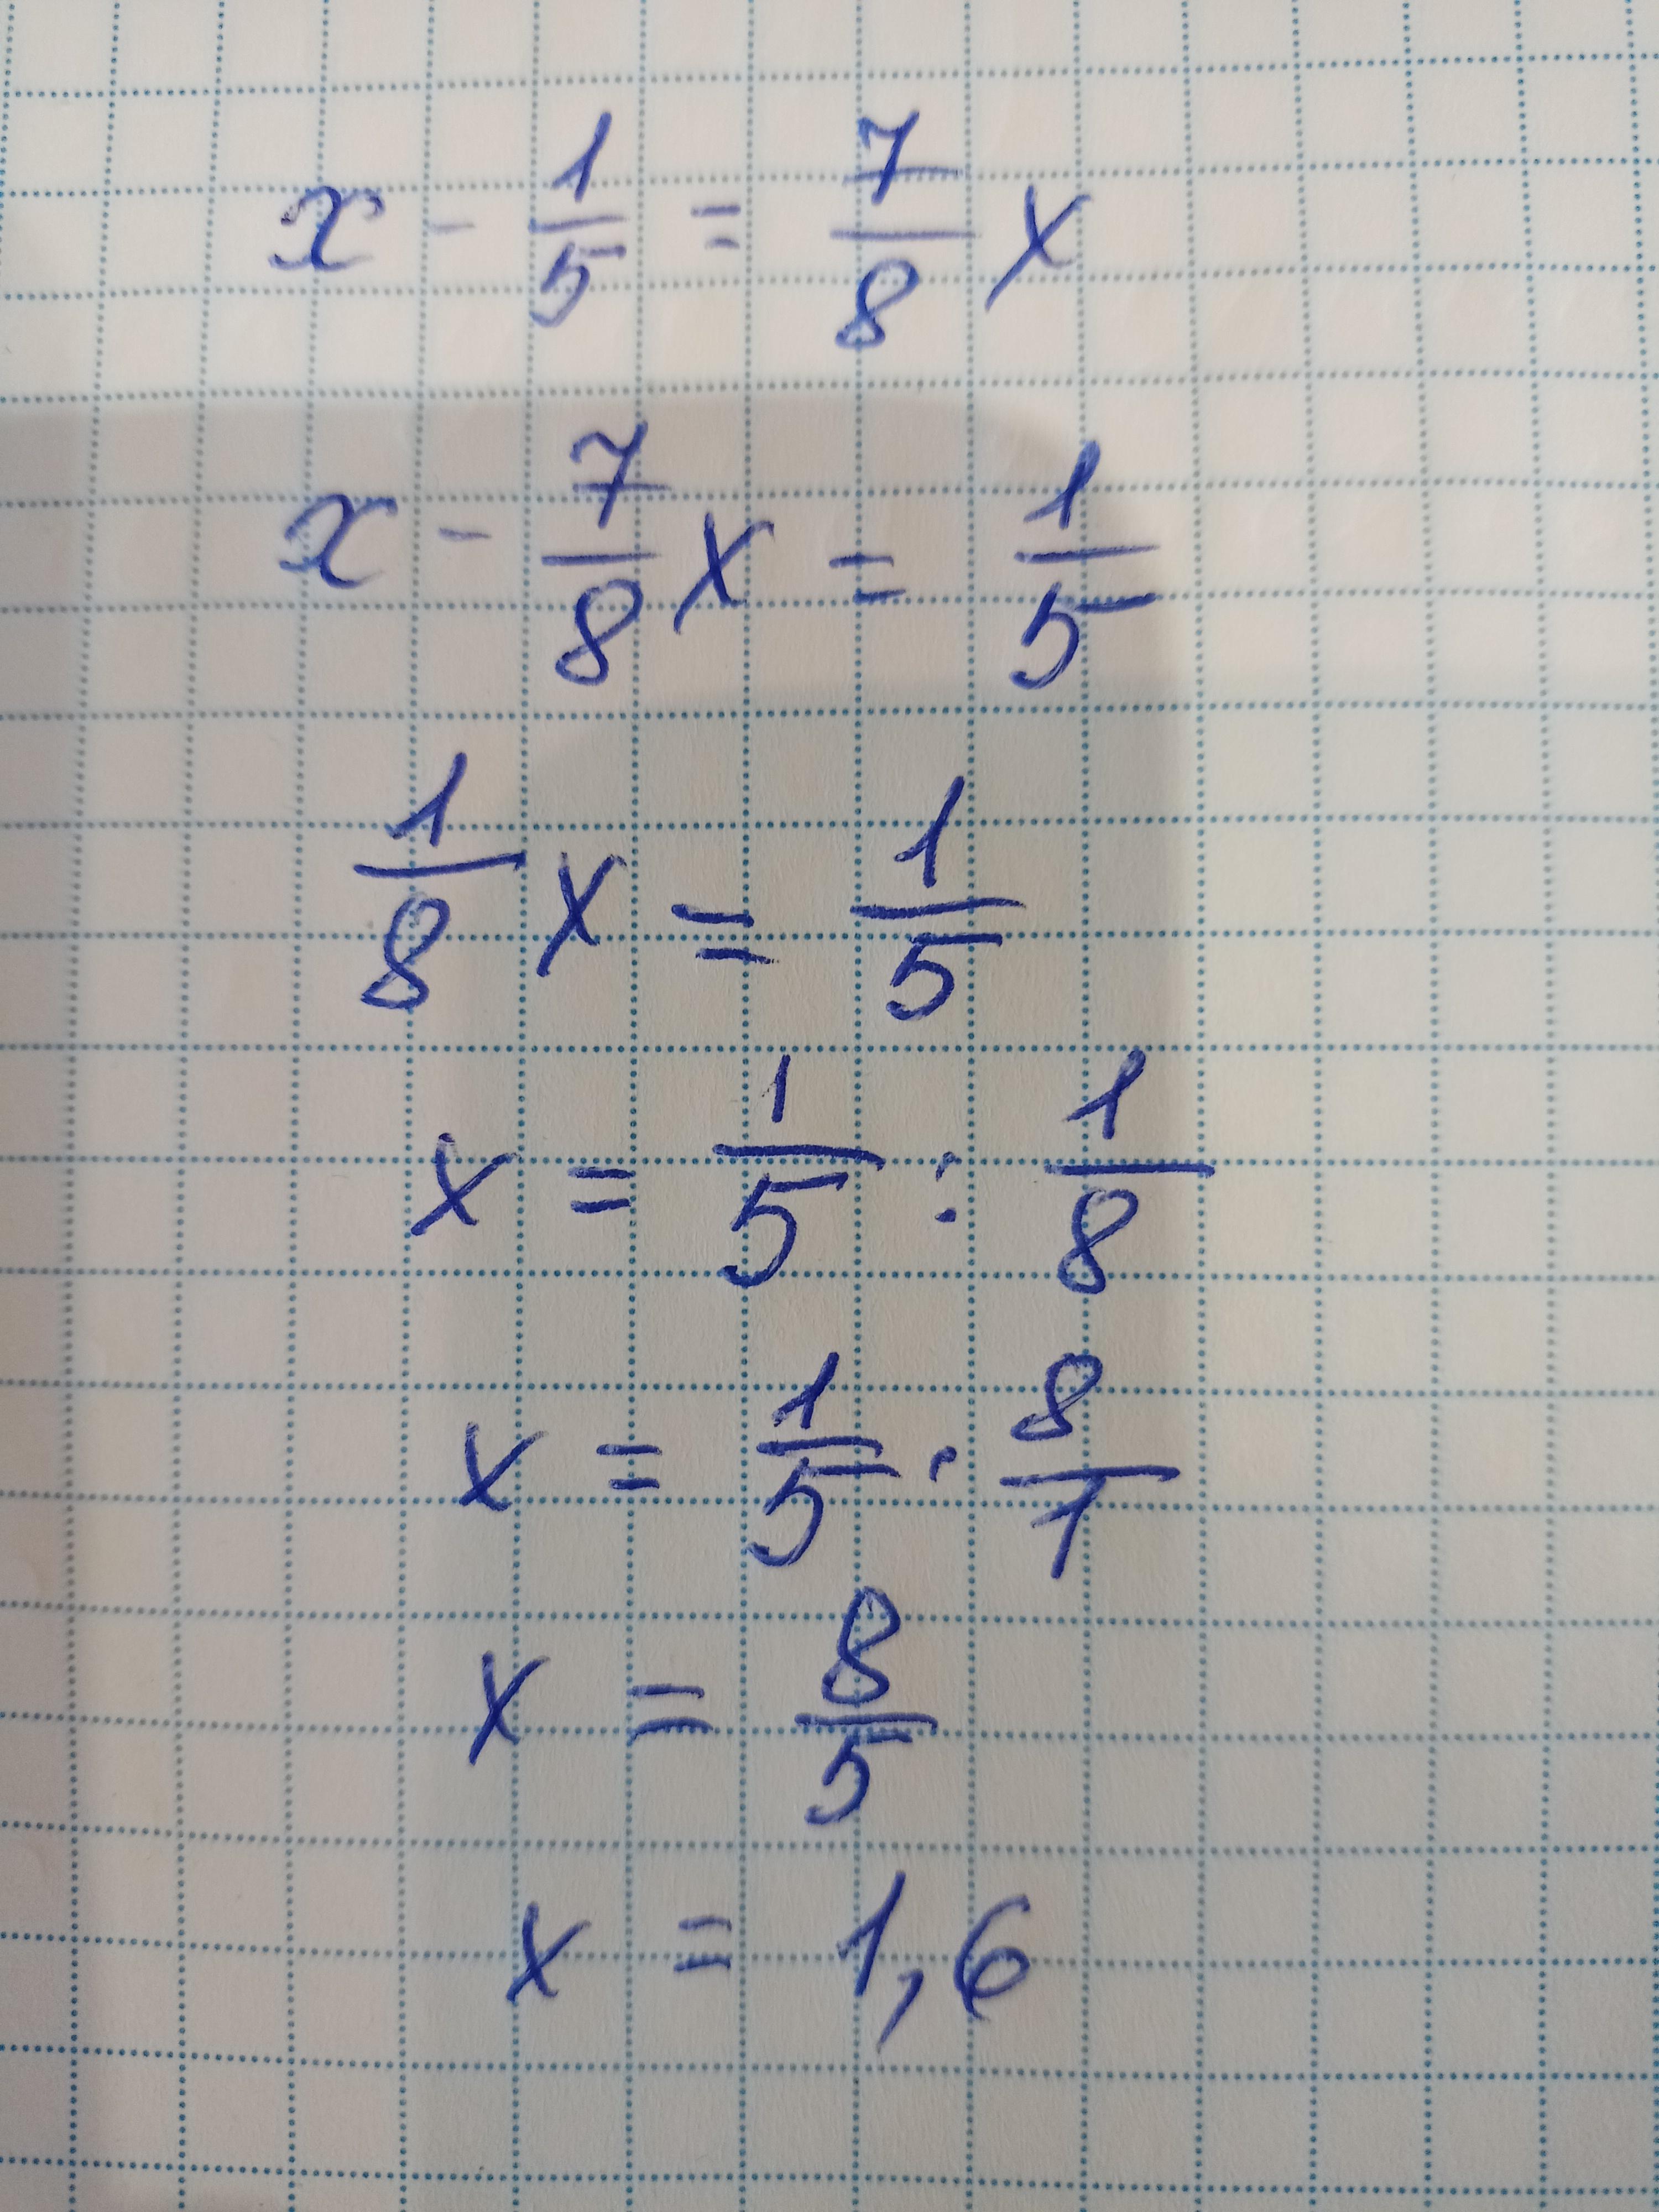 x - 1/5 = 7/8 x
x - 7/8 x = 1/5
1/8 x = 1/5
x = 1/5 : 1/8
x = 1/5 · 8/1
x = 8/5
x = 1,6